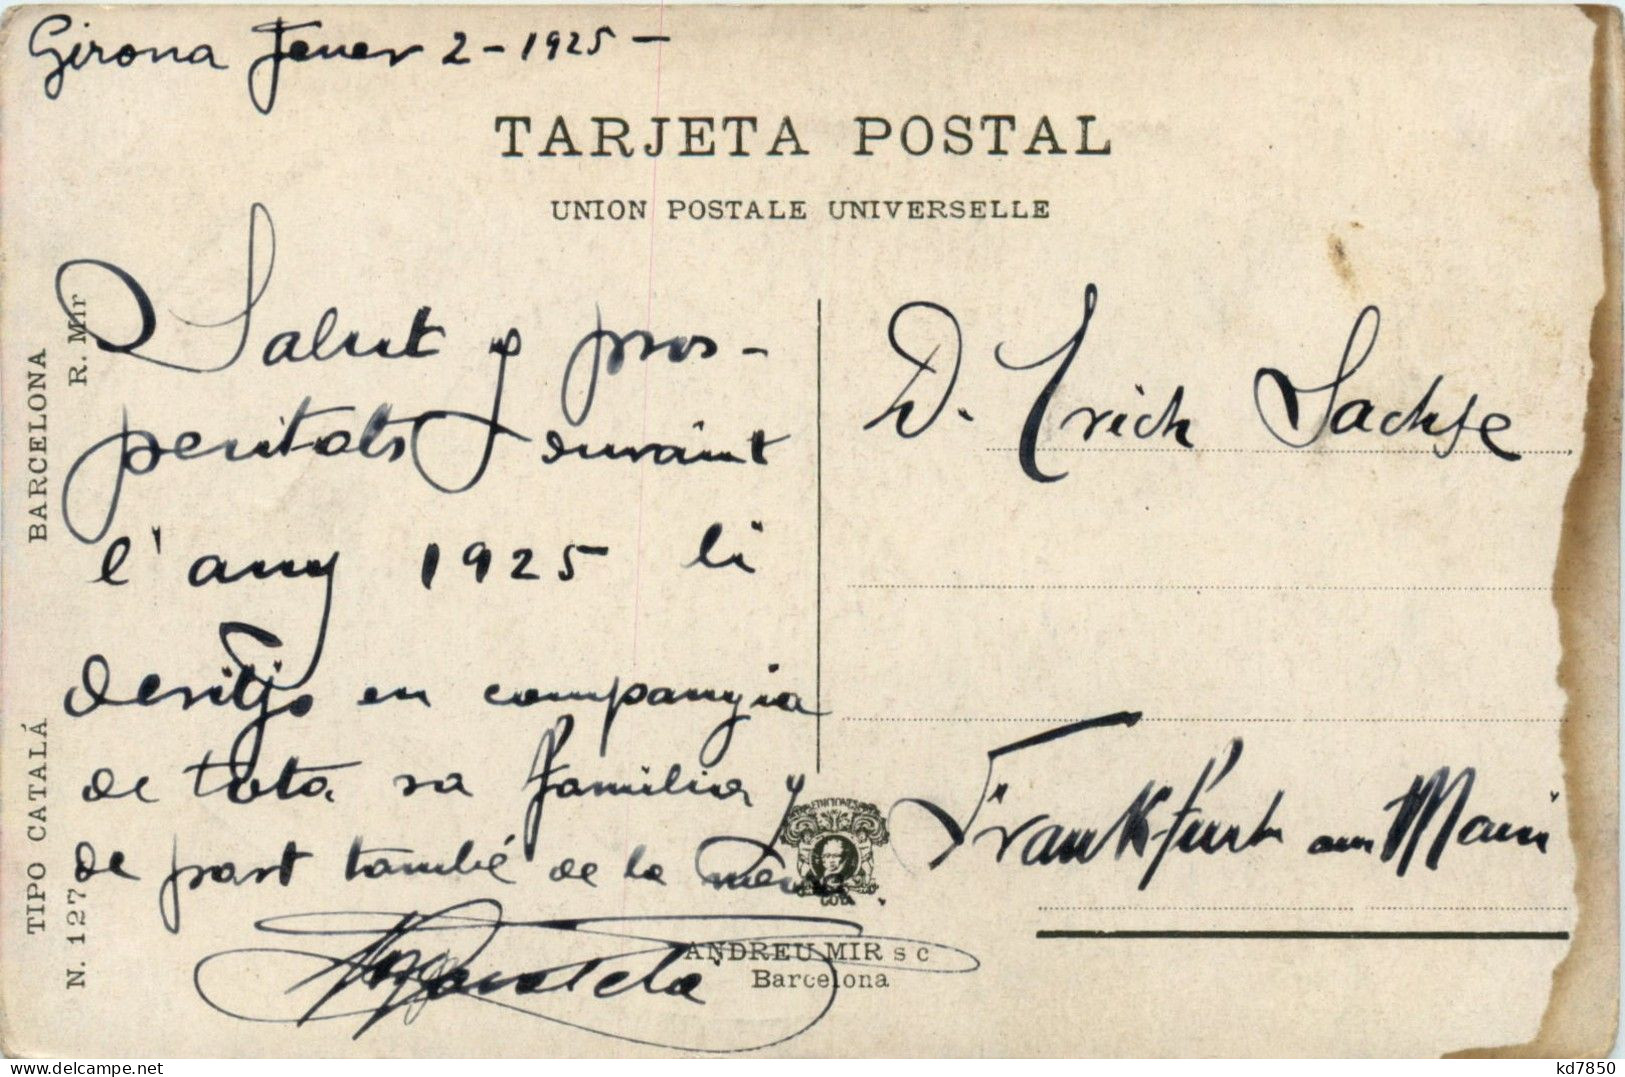 Girona Jener 2-1925-
TARJETA POSTAL
UNION POSTALE UNIVERSELLE
Salut y pros-
peritats durànt
l'any 1925 li
desitjo en companyia
de tota sa familia y
de part també de la meva
D. Erich Sachse
Frankfurt am Main
TIPO CATALÁ BARCELONA
N. 127 R. Mir
ANDREU MIR s c
Barcelona
www.delcampe.net
kd7850